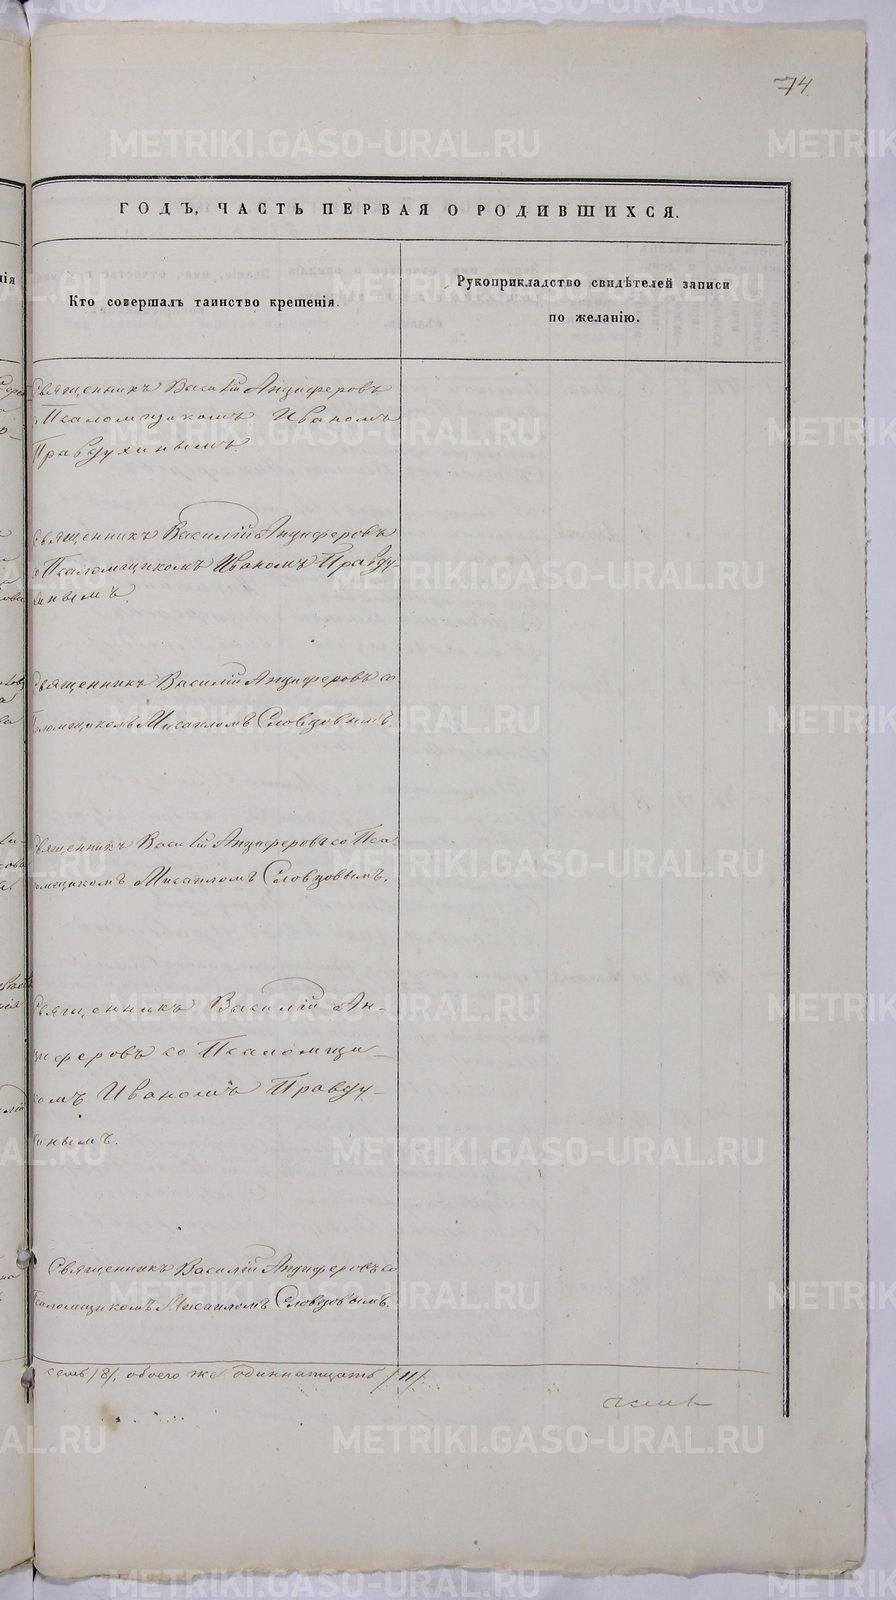 74.
ГОДЪ, ЧАСТЬ ПЕРВАЯ О РОДИВШИХСЯ.
Кто совершалъ таинство крещенія.
Рукоприкладство свидѣтелей записи
по желанію.
Священникъ Василій Анциферовъ
Псаломщикомъ Иваномъ
Правдухинымъ.
Священникъ Василій Анциферовъ
Псаломщикомъ Иваномъ Правду-
хинымъ.
Священникъ Василій Анциферовъ со
Псаломщикомъ Мисаиломъ Словцовымъ.
Священникъ Василій Анциферовъ со Пса-
ломщикомъ Мисаиломъ Словцовымъ.
Священникъ Василій Ан-
циферовъ со Псаломщи-
комъ Иваномъ Правду-
хинымъ.
Священникъ Василій Анциферовъ со
Псаломщикомъ Мисаиломъ Словцовымъ.
/8/, обоего же одиннатцать /11/.
METRIKI.GASO-URAL.RU